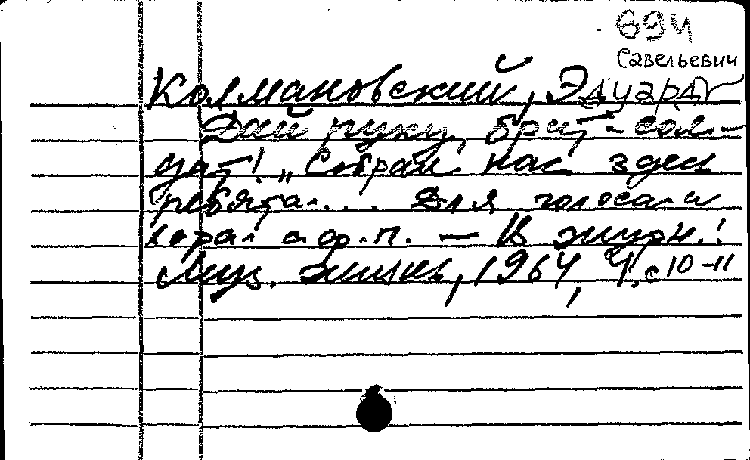 694
Савельевич
Колмановский, Эдуард
Дай руку, брат-сол-
дат! „Собрал нас здесь
ребята... Для голоса и
хора с ф.п. — В журн.:
Муз. жизнь, 1964, 4, с 10-11